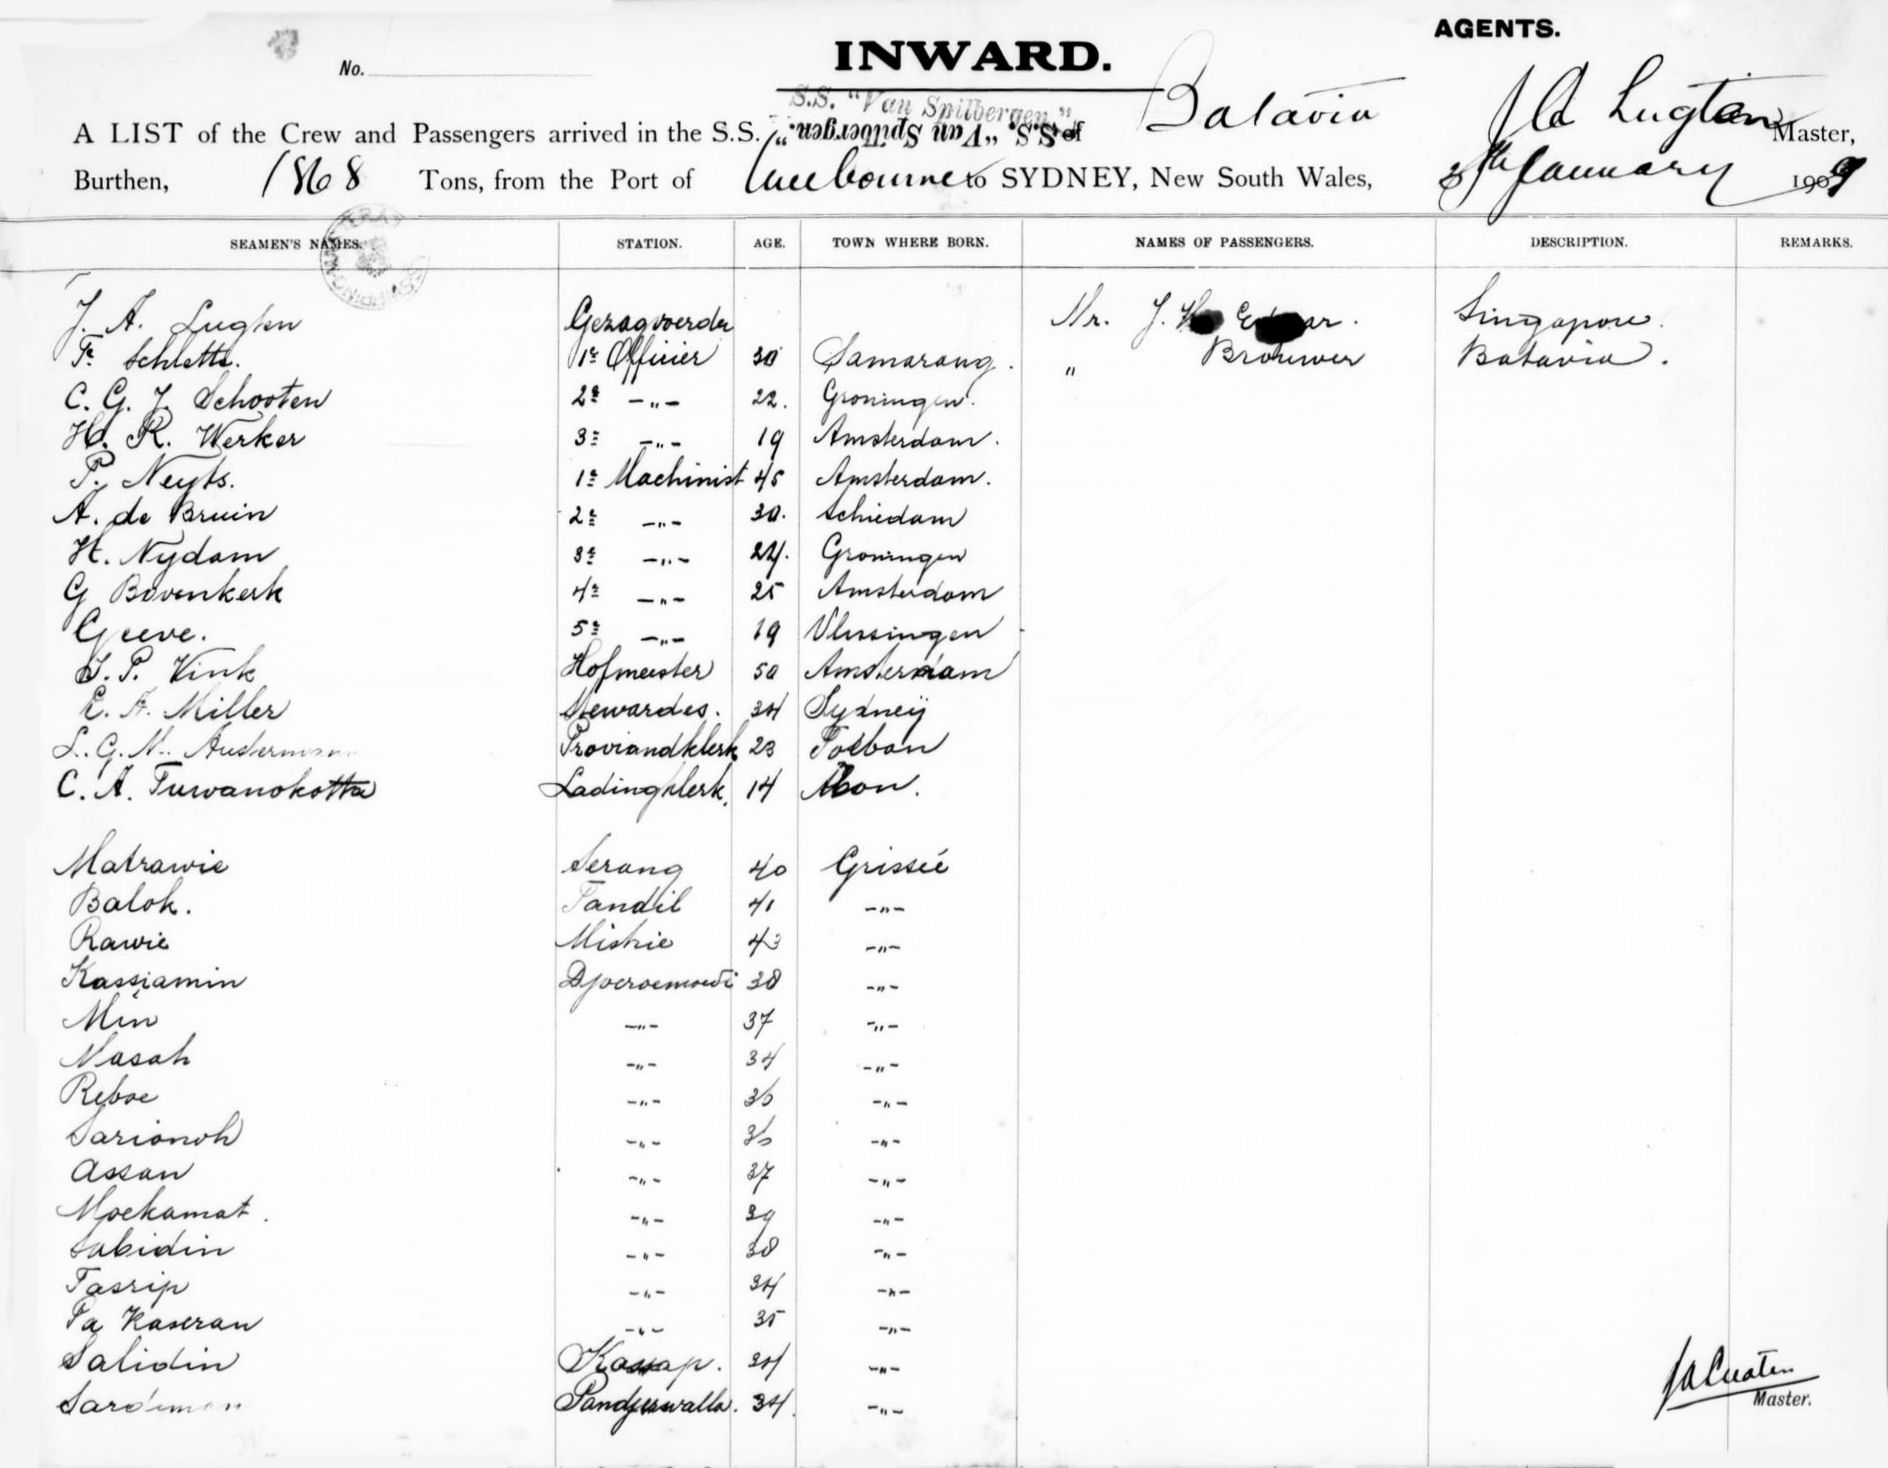 AGENTS.
INWARD.
No.
S.S. "Van Spilbergen"
A LIST of the Crew and Passengers arrived in the S.S. S.S. "Van Spilbergen." of Batavia J A Lugten Master,
Burthen, 1868 Tons, from the Port of Melbourne to SYDNEY, New South Wales, 5th January 1909
SEAMEN'S NAMES. STATION. AGE. TOWN WHERE BORN. NAMES OF PASSENGERS. DESCRIPTION. REMARKS.
J. A. Lugten Gezagvoerder Mr. J. Singapore.
Fr. Schletts. 1e Officier 30 Samarang. " Brouwer Batavia.
C. G. J. Schooten 2e -"- 22. Groningen.
H. R. Werker 3e -"- 19 Amsterdam.
P. Neyts. 1e Machinist 45 Amsterdam.
A. de Bruin 2e -"- 30. Schiedam
H. Nydam 3e -"- 24. Groningen
G Bovenkerk 4e -"- 25 Amsterdam
Greeve. 5e -"- 19 Vlissingen
J. P. Vink Hofmeester 50 Amsterdam
E. A. Miller Stewardes. 34 Sydneij
L. G. N. Austermann Proviandklerk 23 Toeban
C. A. Tuwanokotta Ladingklerk. 14 Abon.
Matrawie Serang 40 Grissée
Balok. Tandil 41 -"-
Rawie Mistrie 43 -"-
Kassiamin Djoeroemoedi 38 -"-
Min -"- 37 -"-
Nasah -"- 34 -"-
Reboe -"- 36 -"-
Sarionoh -"- 36 -"-
Assan -"- 37 -"-
Moekamat. -"- 39 -"-
Sabidin -"- 38 -"-
Tasrip -"- 34 -"-
Pa Kaseran -"- 35 -"-
Salidin Kassap. 34 -"-
Sardiman Pandjerwalla. 34. -"-
J A Lugten
Master.